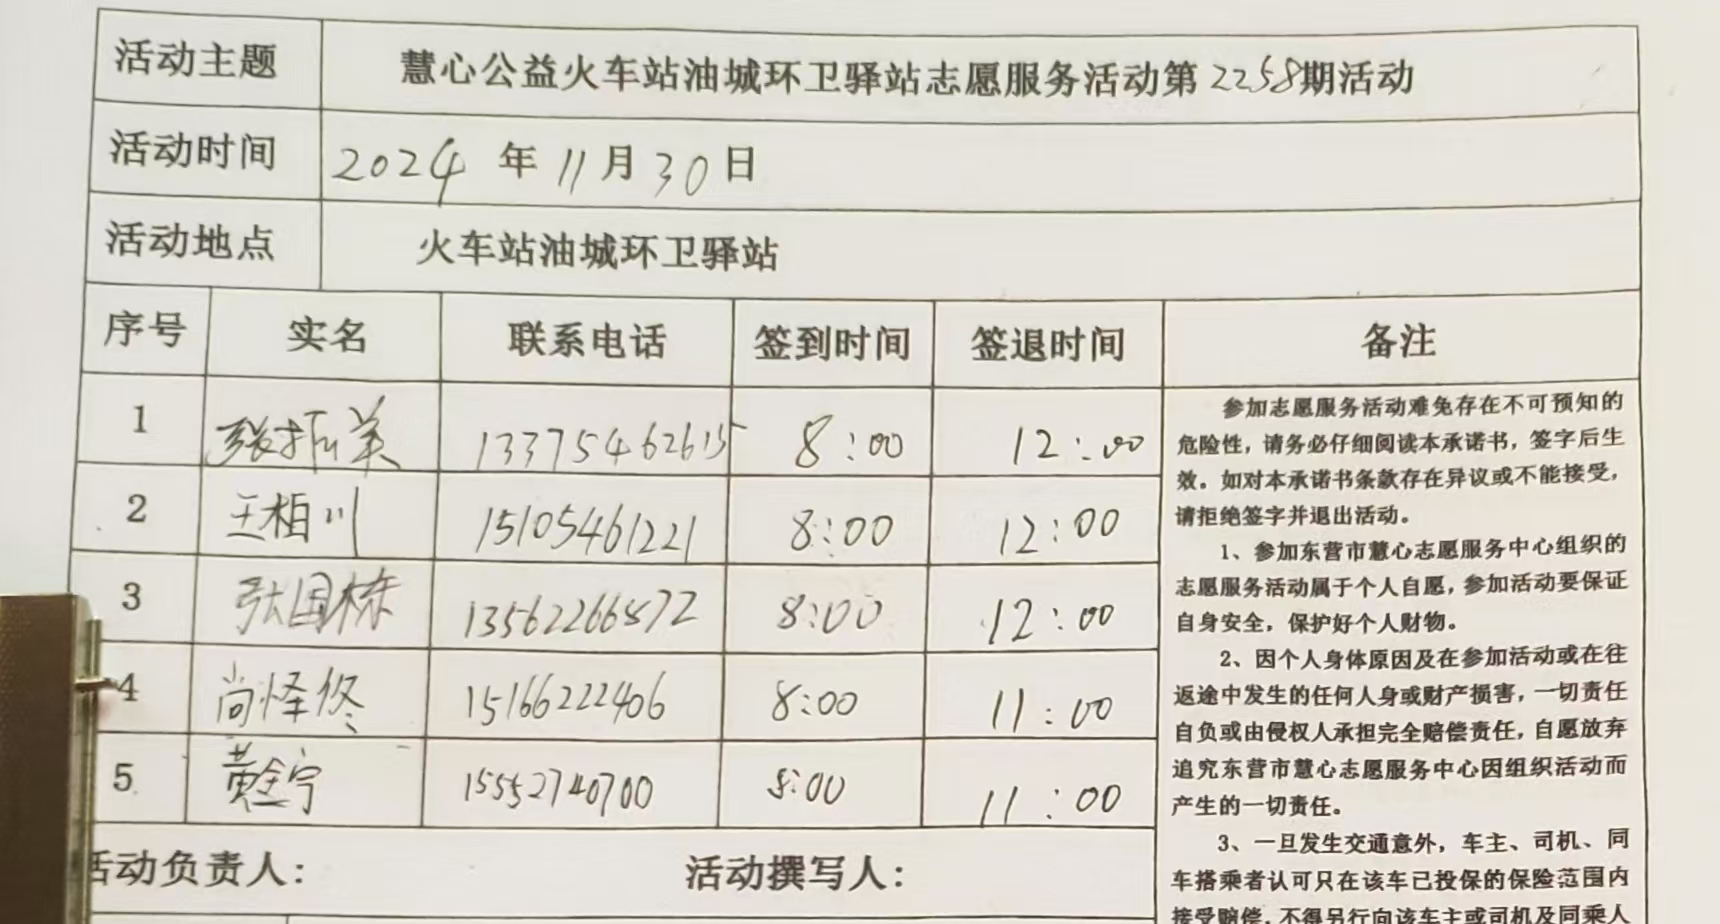 活动主题 慧心公益火车站油城环卫驿站志愿服务活动第2258期活动
活动时间 2024年11月30日
活动地点 火车站油城环卫驿站
序号 实名 联系电话 签到时间 签退时间 备注
1 张振美 13375462615 8:00 12:00
2 王柏川 15105461221 8:00 12:00
3 张国栋 13562266872 8:00 12:00
4 尚怿佟 15166222406 8:00 11:00
5 黄金宁 15552740700 8:00 11:00
参加志愿服务活动难免存在不可预知的
危险性，请务必仔细阅读本承诺书，签字后生
效。如对本承诺书条款存在异议或不能接受，
请拒绝签字并退出活动。
1、参加东营市慧心志愿服务中心组织的
志愿服务活动属于个人自愿，参加活动要保证
自身安全，保护好个人财物。
2、因个人身体原因及在参加活动或在往
返途中发生的任何人身或财产损害，一切责任
自负或由侵权人承担完全赔偿责任，自愿放弃
追究东营市慧心志愿服务中心因组织活动而
产生的一切责任。
3、一旦发生交通意外，车主、司机、同
车搭乘者认可只在该车已投保的保险范围内
接受赔偿，不得另行向该车主或司机及同乘人
活动负责人： 活动撰写人：